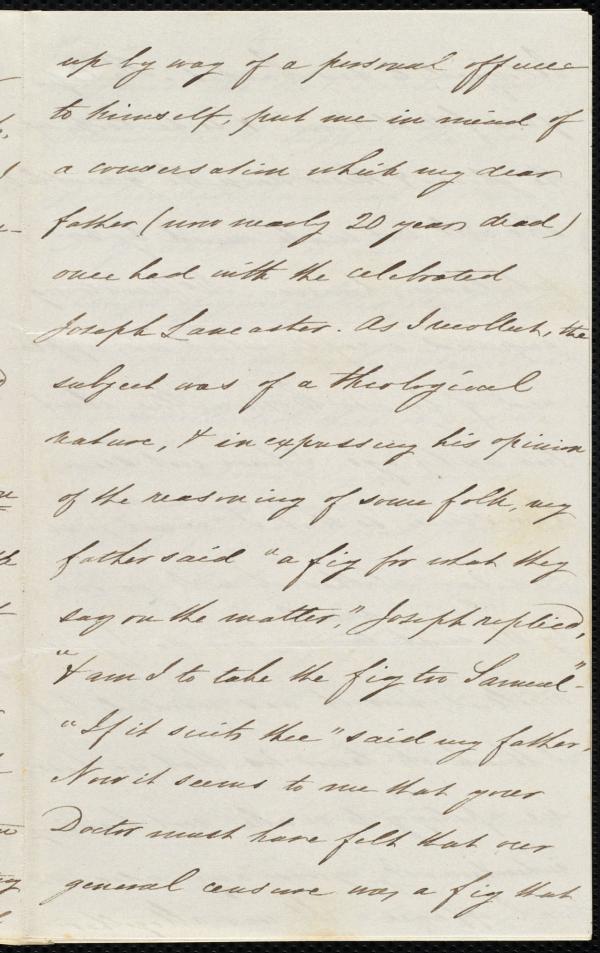 up by way of a personal offence
to himself, put me in mind of
a conversation which my dear
father (now nearly 20 years dead)
once had with the celebrated
Joseph Lancaster. As I recollect, the
subject was of a theological
nature, & in expressing his opinion
of the reasoning of some folk, my
father said "a fig for what they
say on the matter," Joseph replied,
"& am I to take the fig too Samuel"-
"If it suits thee" said my father.
Now it seems to me that your
Doctor must have felt that our
general censure was a fig that